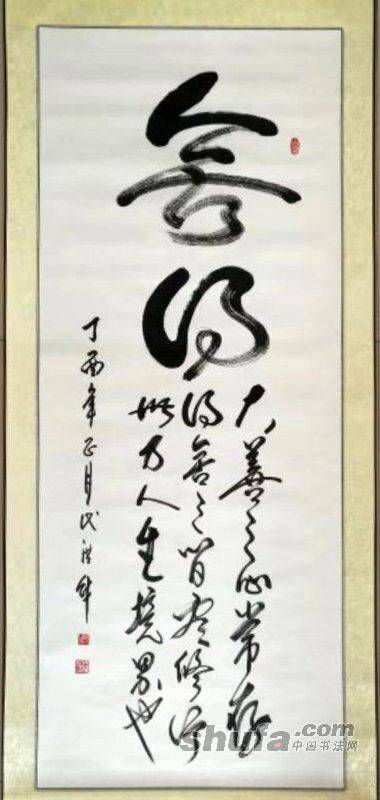 舍得
大善之心常存
得舍之间尽修行
此乃人生境界也
丁酉年正月
shufa.com
中国书法网